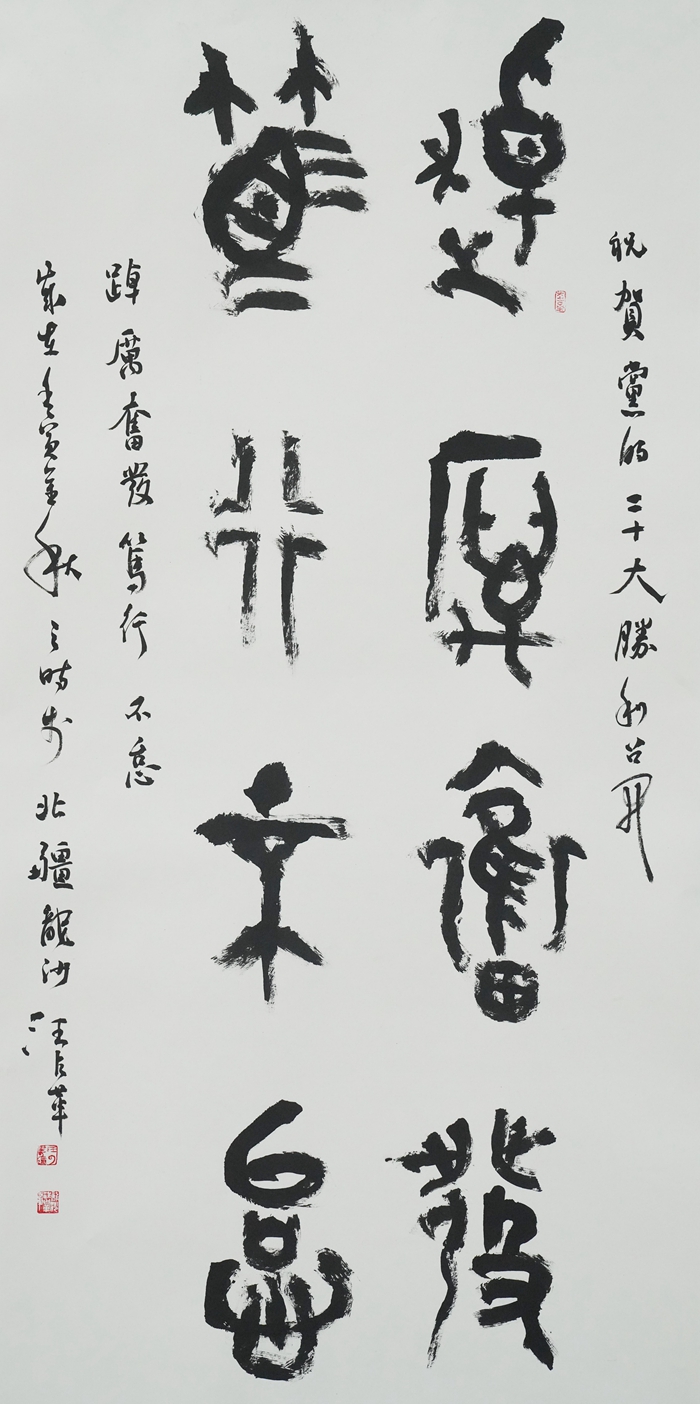 祝賀黨的二十大勝利召開
踔厲奮發
篤行不怠
踔厲奮發篤行不怠
歲在壬寅金秋之時於北疆龍沙汪占華